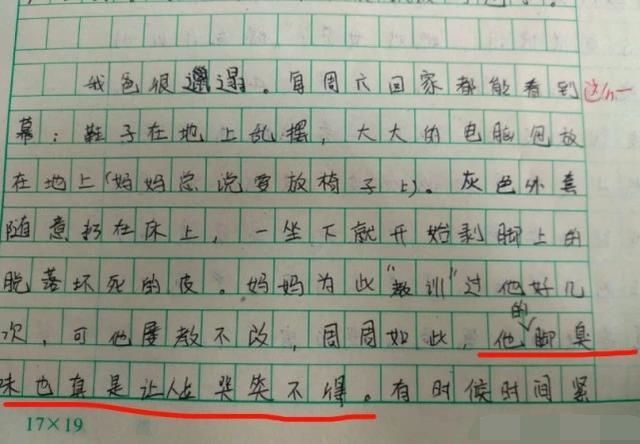 我爸很邋遢。每周六回家都能看到这么一
幕：鞋子在地上乱摆，大大的电脑包放
在地上(妈妈总说要放椅子上)。灰色外套
随意扔在床上，一坐下就开始剥脚上的
脱落坏死的皮。妈妈为此“教训”过他好几
次，可他屡教不改，周周如此，他的脚臭
味也真是让人哭笑不得。有时候时间紧
17×19